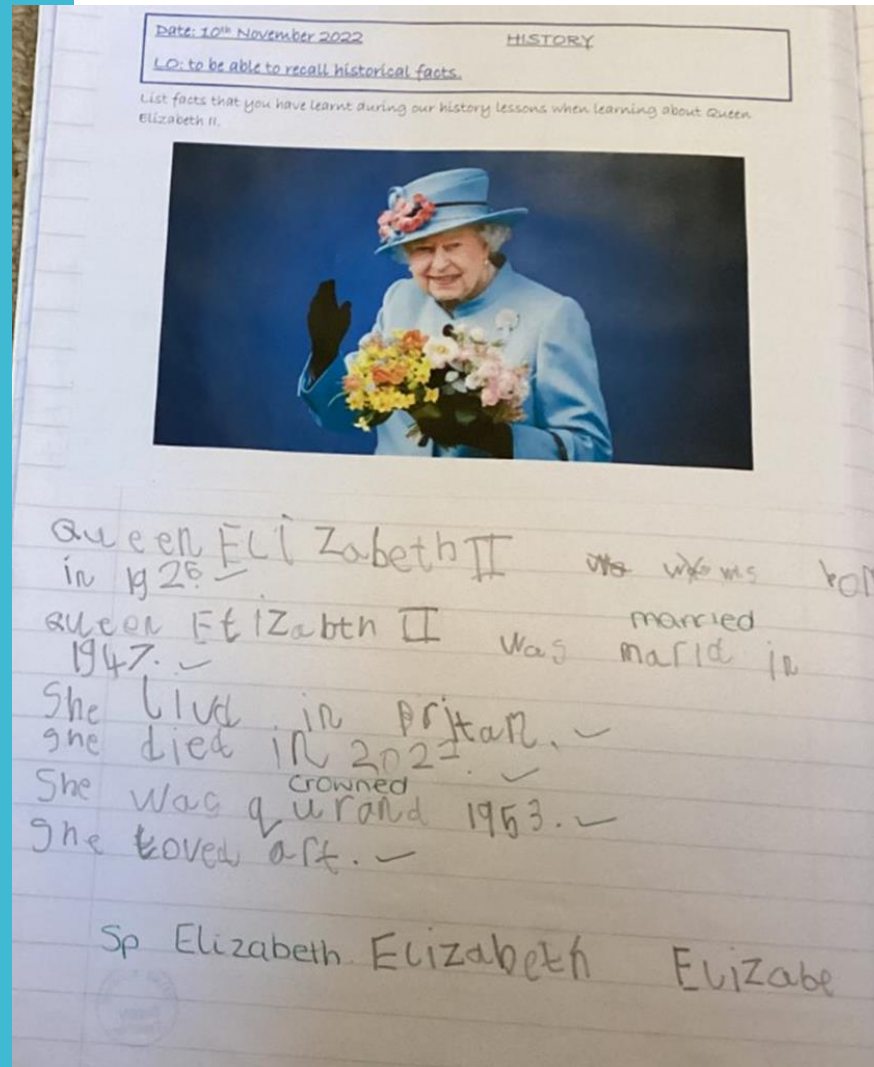 Date: 10th November 2022 HISTORY
LO: to be able to recall historical facts.
List facts that you have learnt during our history lessons when learning about Queen
Elizabeth II.
Queen ELiZabeth II ws
in 1926
Queen ELIZabth II was marid in
married
1947.
She livd in pritan.
She died in 2022.
crowned
She was qurand 1953.
She loved art.
Sp Elizabeth Elizabeth Elizabe